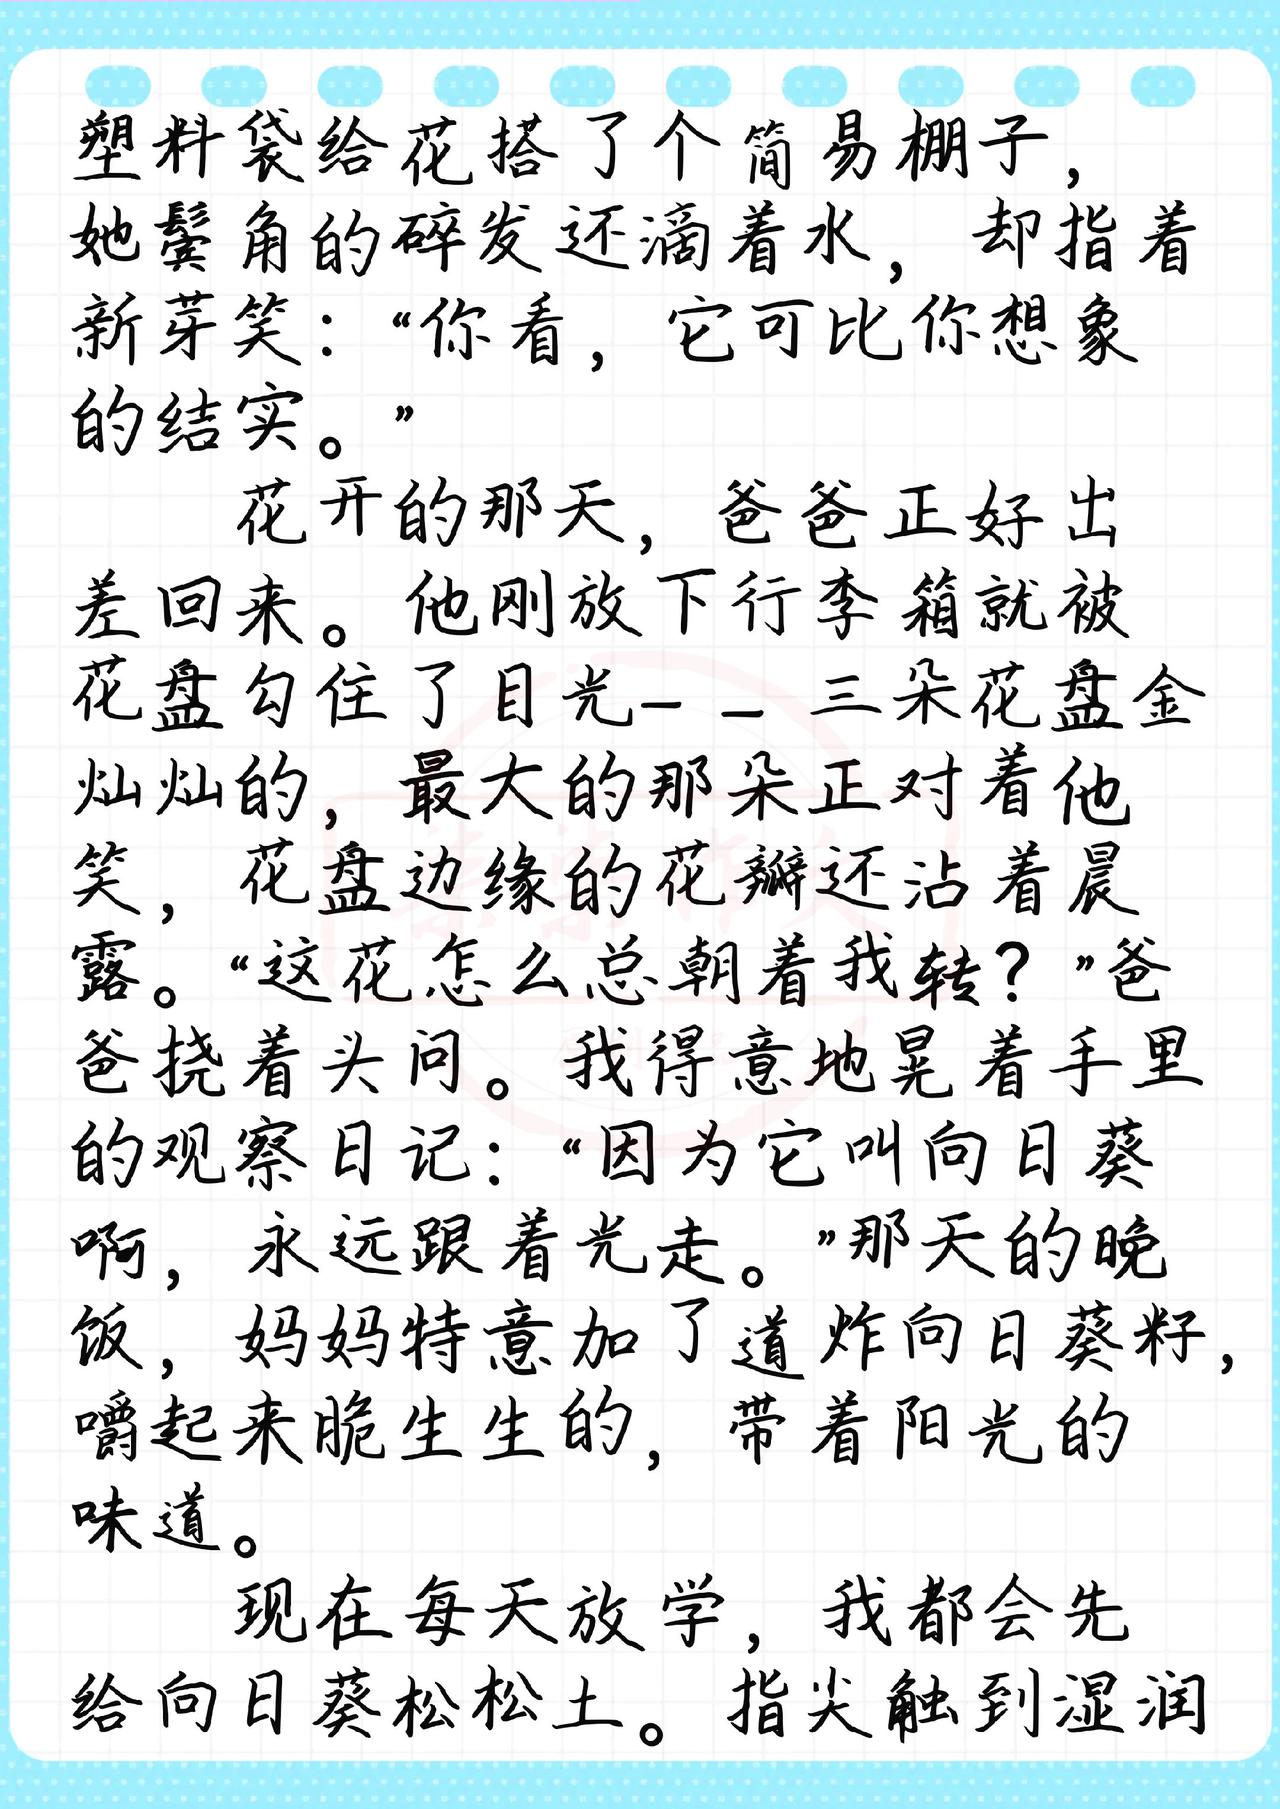 塑料袋给花搭了个简易棚子，
她鬓角的碎发还滴着水，却指着
新芽笑：“你看，它可比你想象
的结实。”
花开的那天，爸爸正好出
差回来。他刚放下行李箱就被
花盘勾住了目光——三朵花盘金
灿灿的，最大的那朵正对着他
笑，花盘边缘的花瓣还沾着晨
露。“这花怎么总朝着我转？”爸
爸挠着头问。我得意地晃着手里
的观察日记：“因为它叫向日葵
啊，永远跟着光走。”那天的晚
饭，妈妈特意加了道炸向日葵籽，
嚼起来脆生生的，带着阳光的
味道。
现在每天放学，我都会先
给向日葵松松土。指尖触到湿润